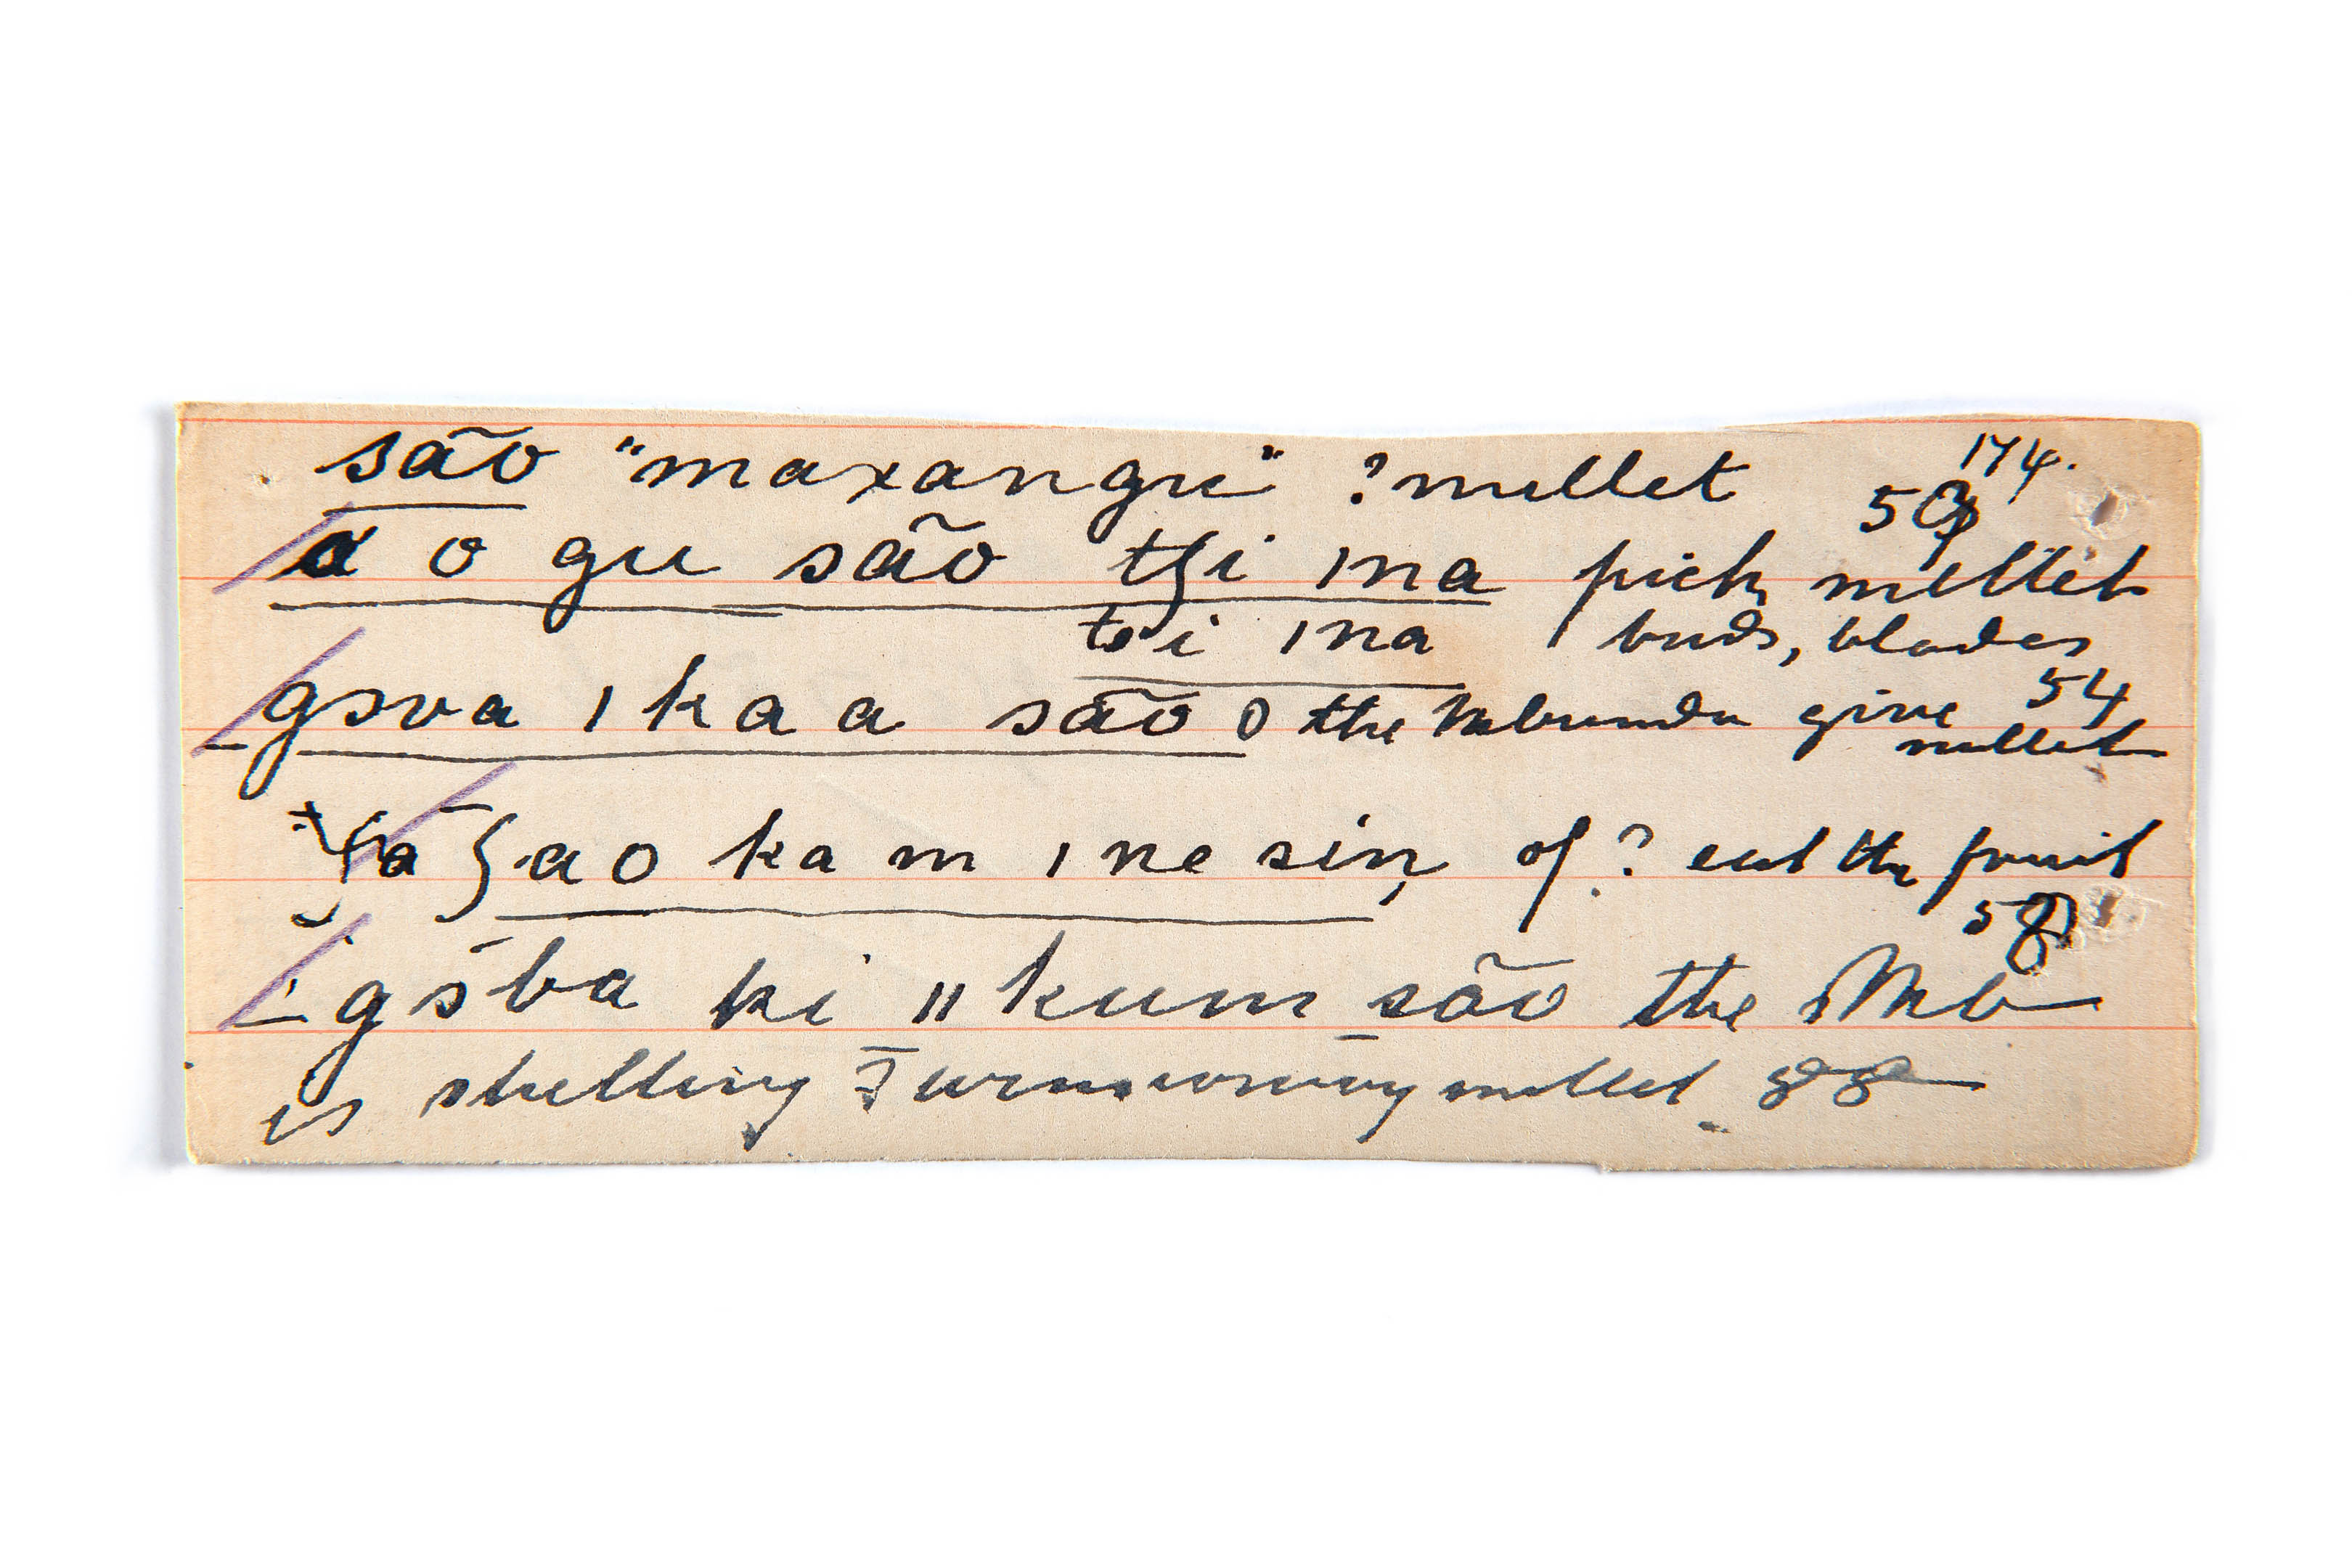 são "maxangu" ? millet 174.
a o gu são tʃi ına pick millet
tsi ına buds, blades
gɔva ı k a a são the Mbundu give 54
millet
ʃ a o ka m ı ne siŋ of ? eat the fruit
58
gɔ́ba ki ıı kum são the Mb
is shelling winnowing millet 88